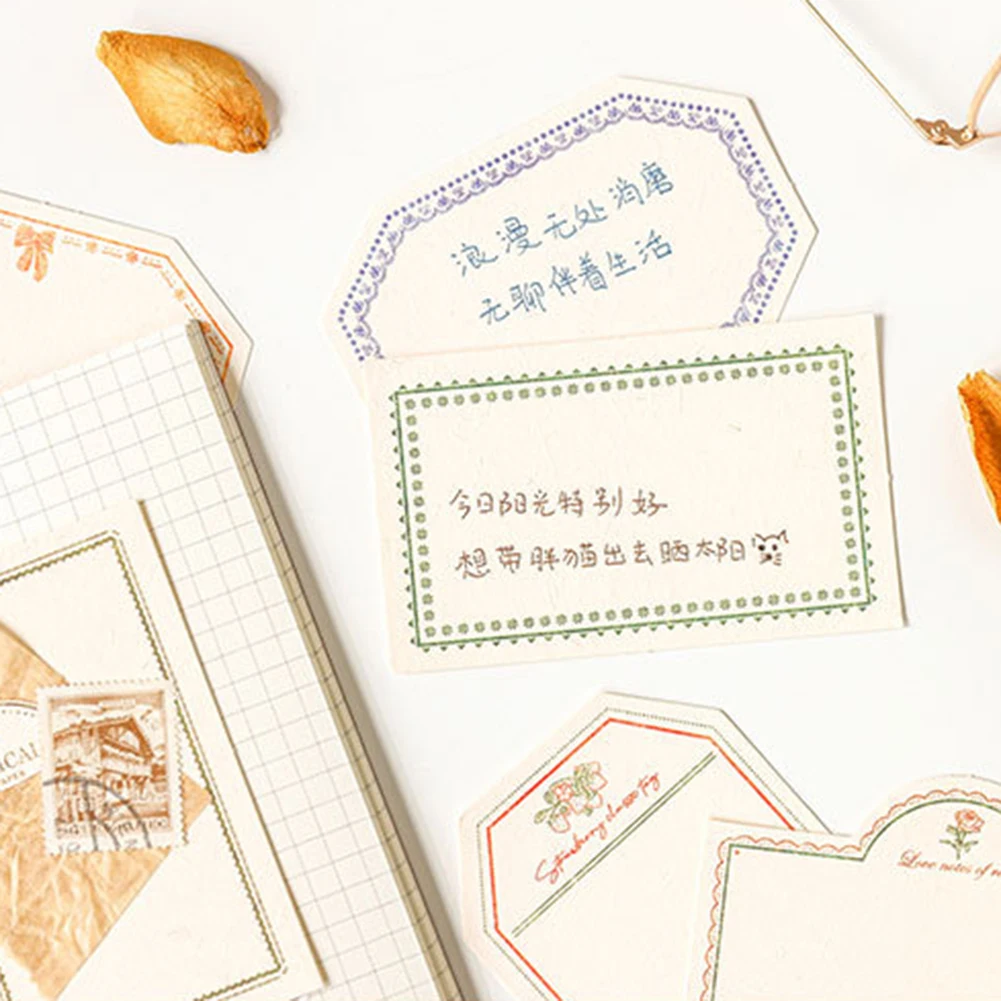 浪漫无处消磨
无聊伴着生活
今日阳光特别好
想带胖猫出去晒太阳
Love notes of